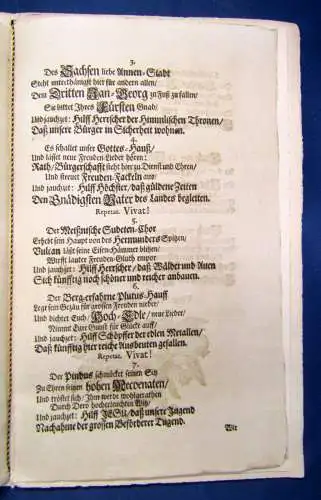 3.
Des Sachsen liebe Annen-Stadt
Steht unterthänigst hier für andern allen/
Dem Dritten Jan-Georg zu Fuß zu fallen/
Sie bittet Ihres Fürsten Gnad/
Und jauchzet: Hilff Herrscher der Himmlischen Thronen/
Daß unsere Bürger in Sicherheit wohnen.
4.
Es schallet unser Gottes-Hauß/
Und lässet neue Freuden-Lieder hören:
Rath/Bürgerschafft steht hier zu Dienst und Ehren/
Und streuet Freuden-Fackeln aus/
Und jauchzet: Hilff Höchster/ daß güldene Zeiten
Den Gnädigsten Vater des Landes begleiten.
Repetat. Vivat!
5.
Der Meißnische Sudeten-Chor
Erhebt sein Haupt von des Hermunders Spitzen/
Vulcan läßt seine Eisen-Hämmer blitzen/
Wirfft lauter Freuden-Gluth empor
Und jauchzet: Hilff Herrscher/ daß Wälder und Auen
Sich künfftig noch schöner und reicher anbauen.
6.
Der Berg-erfahrne Plutus-Hauff
Legt sein Gezäu für grossen Freuden nieder/
Und dichtet Euch/ Hoch-Edle/ neue Lieder/
Nimmt Eure Gunst für Glücke auff/
Und jauchzet: Hilff Schöpffer der edlen Metallen/
Daß künfftig hier reiche Ausbeuten gefallen.
Repetat. Vivat!
7.
Der Pindus schmücket seinen Sitz
Zu Ehren seinen hohen Mecoenaten/
Und tröstet sich/ Ihm werde wohlgerathen
Durch Dero hocherleuchten Witz/
Und jauchzet: Hilff JESU/ daß unsere Jugend
Nachahme der grossen Beförderer Tugend.
Wir